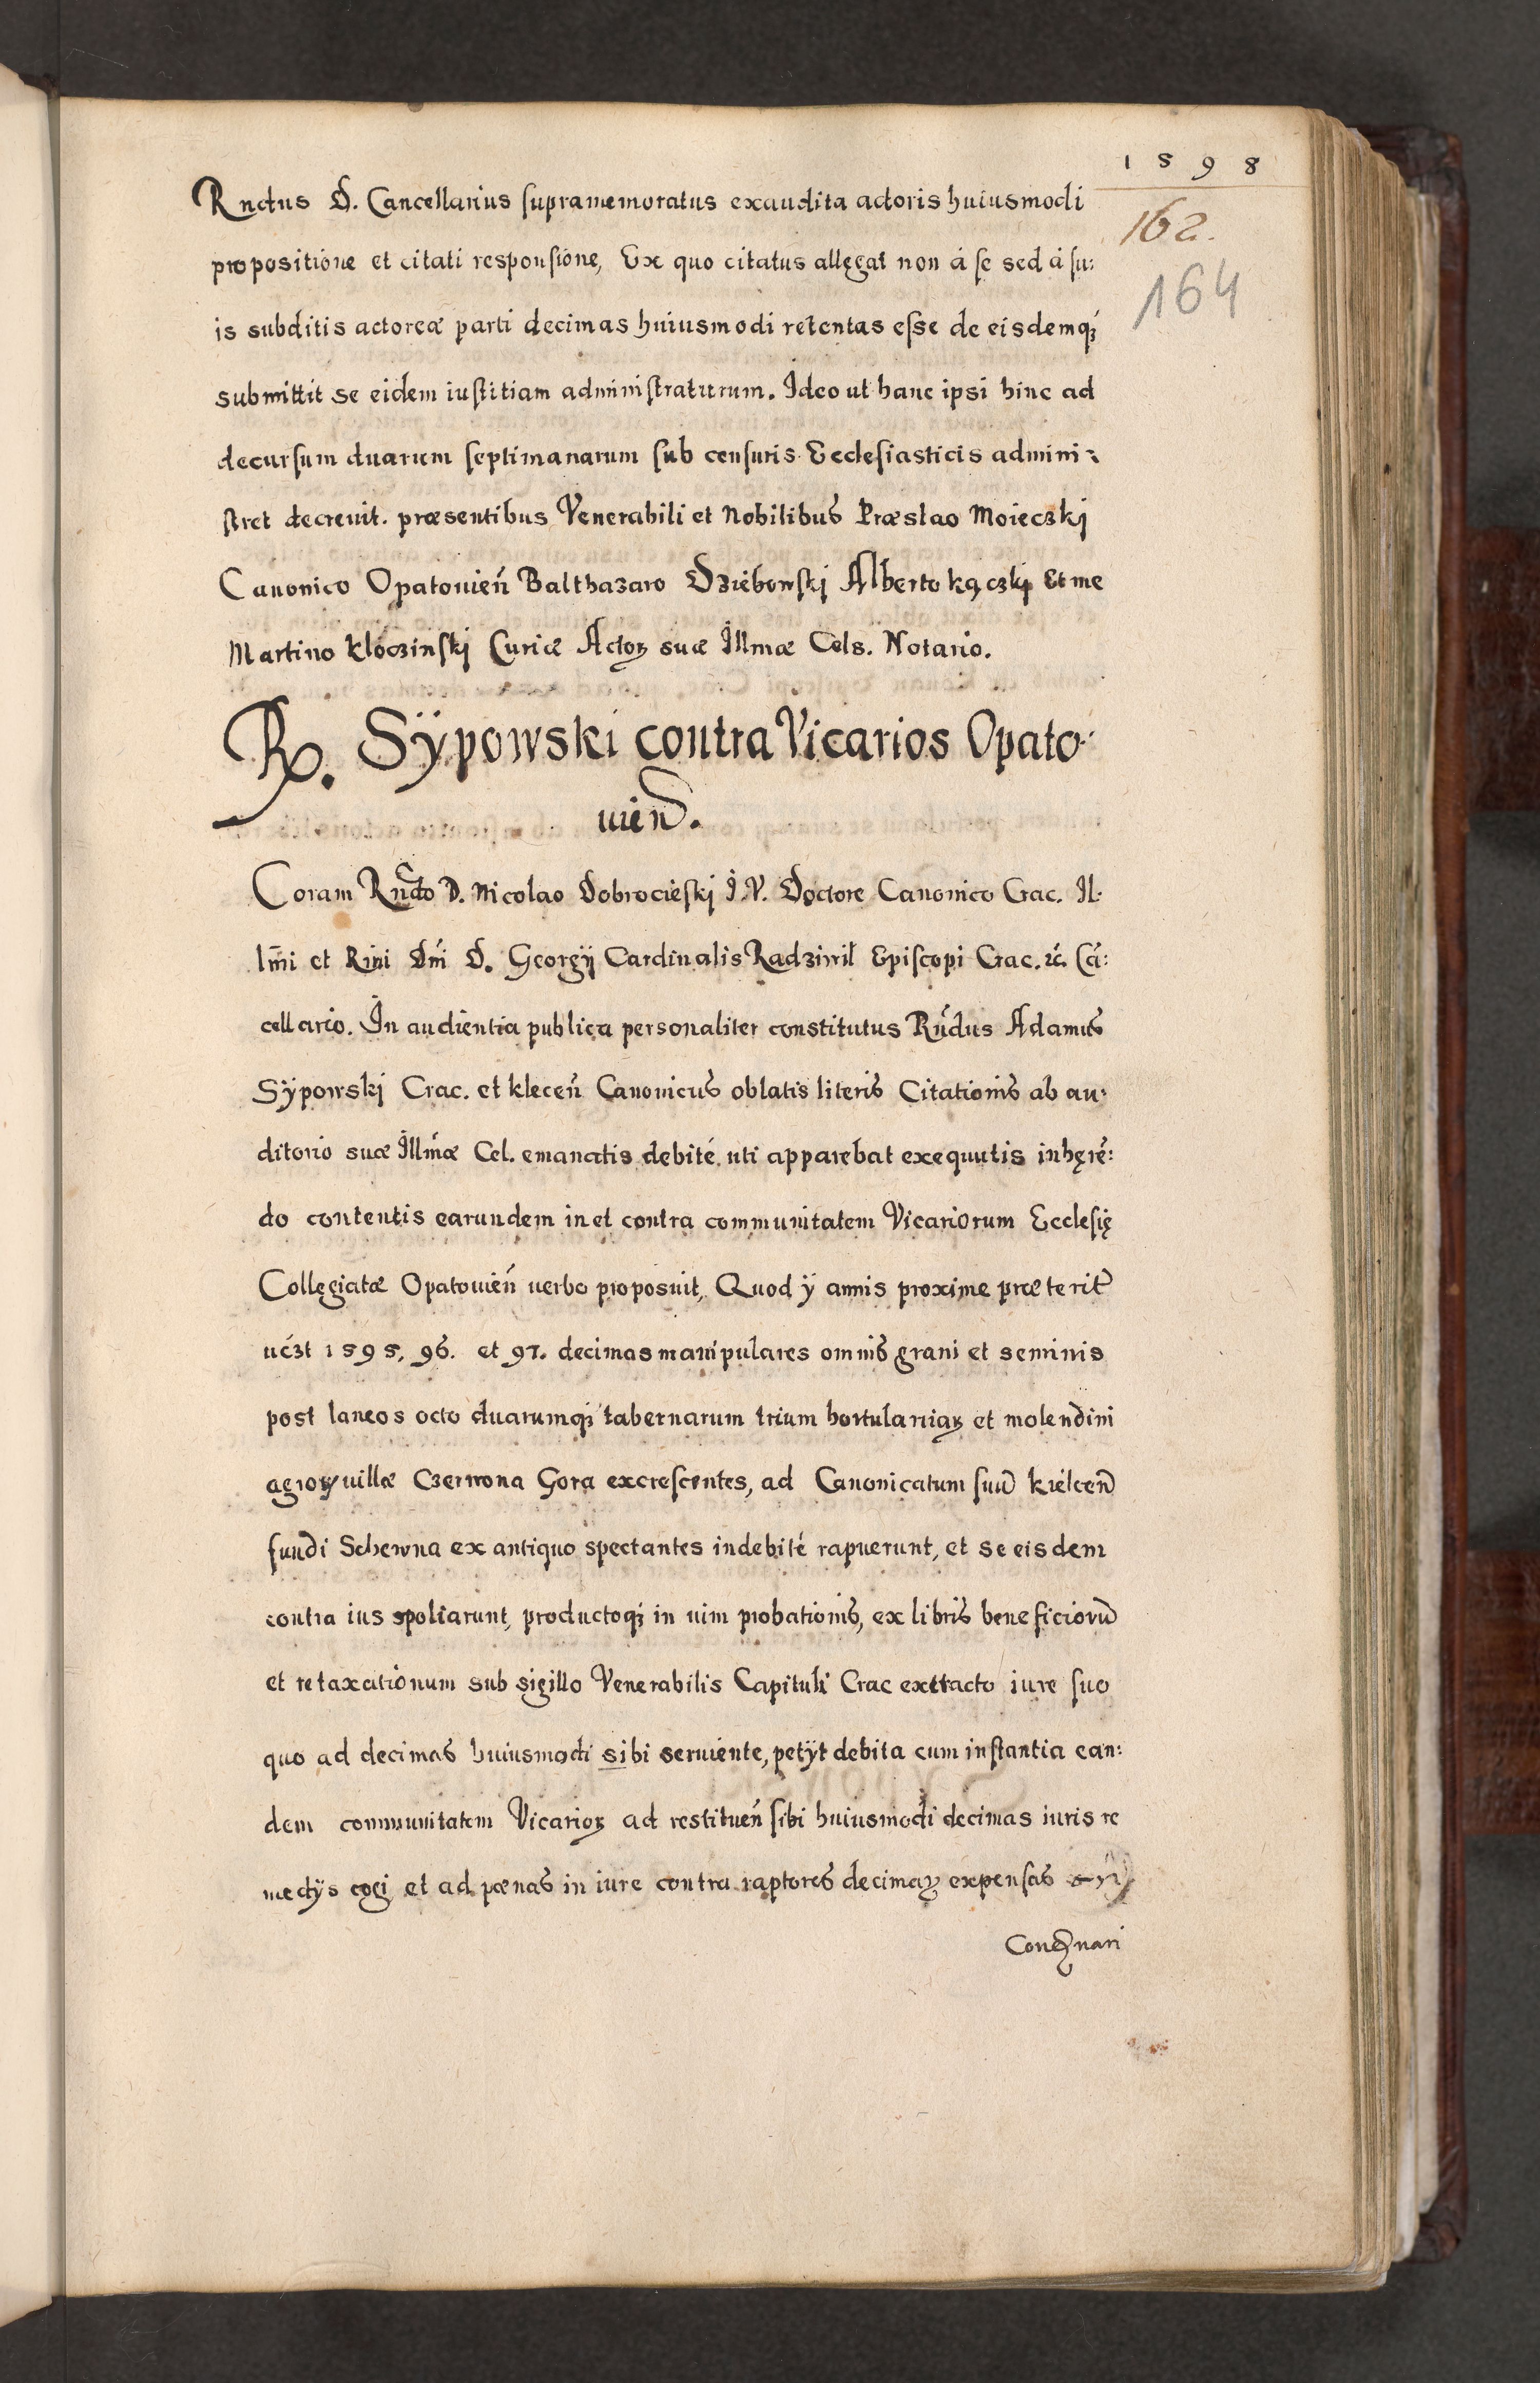 1598
162.
164
Rndus D. Cancellarius supramemoratus exaudita actoris huiusmodi
propositione et citati responsione, Ex quo citatus allęgat non á se sed á su:
is subditis actoreæ parti decimas huiusmodi retentas esse de eisdemqꝫ
submittit se eidem iustitiam administraturum. Ideo ut hanc ipsi hinc ad
decursum duarum septimanarum sub censuris Ecclesiasticis admini:
stret decrevit. præsentibus Venerabili et Nobilibus Præslao Moieczkj
Canonico Opatovień Balthazaro Dziebonskj Alberto kączkj Et me
Martino kloczinskj Curiæ Actoꝝ suæ Illmæ Cels. Notario.
R. Sÿpowski contra Vicarios Opato:
uien.
Coram Rndo D. Nicolao Dobrocieskj I. V. Doctore Canonico Crac. Il:
lmi et Rmi Dni D. Georgij Cardinalis Radziwil Episcopi Crac. &c. Cá:
cellario. In audientia publica personaliter constitutus Rńdus Adamus
Sÿpowskj Crac. et kleceń Canonicus oblatis literis Citationis ab au:
ditorio suæ Illmæ Cel. emanatis debité uti apparebat exequutis inhęré:
do contentis earundem in et contra communitatem Vicariorum Ecclesię
Collęgiatæ Opatouień uerbo proposuit, Quod ÿ annis proxime præterit
uczt 1595, 96. et 97. decimas manipulares omnis grani et seminis
post laneos octo duarumqꝫ tabernarum trium hortulaniaꝝ et molendini
agroꝝ villæ Czerwona Gora excrescentes, ad Canonicatum suū kielceń
fundi Schewna ex antiquo spectantes indebité rapuerunt, et se eisdem
contra ius spoliarunt, productoqꝫ in uim probationis, ex libris beneficiorū
et retaxationum sub sigillo Venerabilis Capituli Crac extracto iure suo
quo ad decimas huiusmodi sibi seruiente, petÿt debita cum instantia ean:
dem communitatem Vicarioꝝ ad restitueń sibi huiusmodi decimas iuris re
medÿs cogi et ad pœnas in iure contra raptores decimaꝝ expensas
Condnari